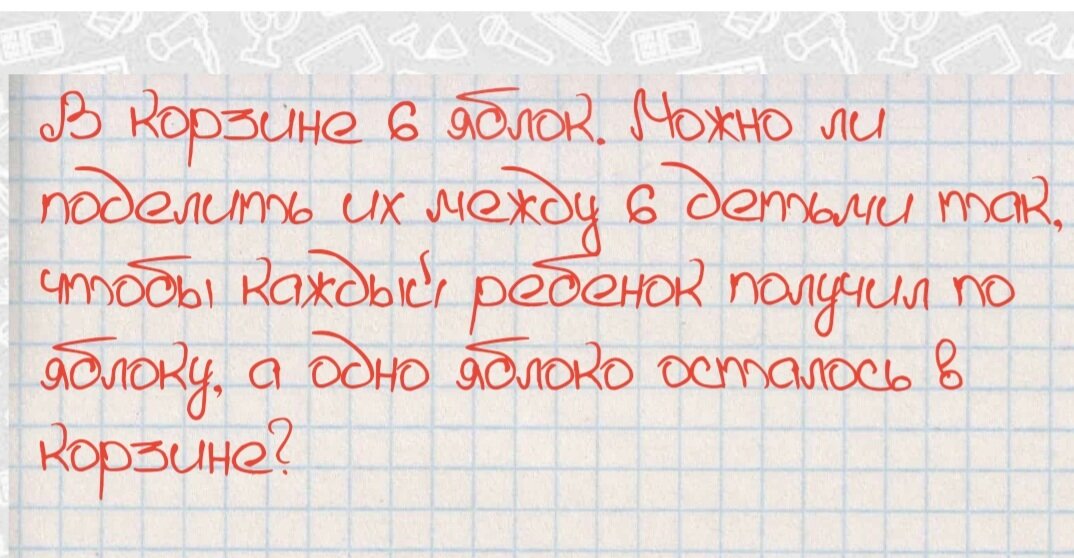 В корзине 6 яблок. Можно ли
поделить их между 6 детьми так,
чтобы каждый ребенок получил по
яблоку, а одно яблоко осталось в
корзине?